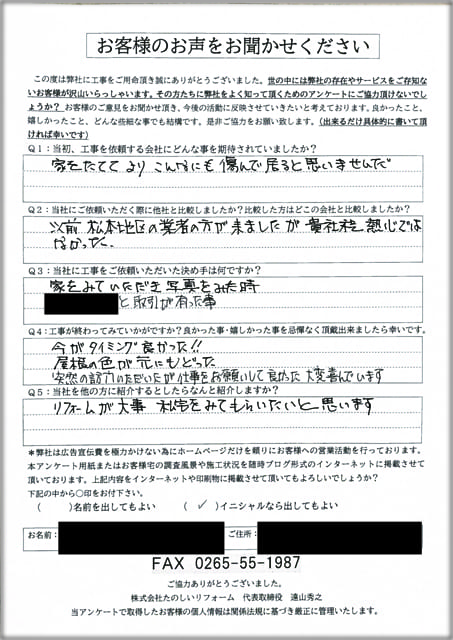 お客様のお声をお聞かせください
この度は弊社に工事をご用命頂き誠にありがとうございました。世の中には弊社の存在やサービスをご存知ない
お客様が沢山いらっしゃいます。その方たちに弊社をよく知って頂くためのアンケートにご協力頂けないで
しょうか？ お客様のご意見をお聞かせ頂き、今後の活動に反映させていきたいと考えております。良かったこと、
嬉しかったこと、どんな些細な事でも結構です。是非ご協力をお願い致します。（出来るだけ具体的に書いて頂
ければ幸いです）
Q1：当初、工事を依頼する会社にどんな事を期待されていましたか？
家をたてて より こんなにも 傷んで居ると思いませんだ
Q2：当社にご依頼いただく際に他社と比較しましたか？比較した方はどこの会社と比較しましたか？
以前 松本地区の業者の方が来ましたが 貴社程 熱心では
なかった。
Q3：当社に工事をご依頼いただいた決め手は何ですか？
家をみていただき 写真をみた時
と取引が有った事
Q4：工事が終わってみていかがですか？良かった事・嬉しかった事を忌憚なく頂戴出来ましたら幸いです。
今がタイミング良かった!!
屋根の色が元にもどった
突然の訪力いただいたが仕事をお願いして良かった 大変喜んでいます
Q5：当社を他の方に紹介するとしたらなんと紹介しますか？
リフォームが大事 私宅をみてもらいたいと思います
＊弊社は広告宣伝費を極力かけない為にホームページだけを頼りにお客様への営業活動を行っております。
本アンケート用紙またはお客様宅の調査風景や施工状況を随時ブログ形式のインターネットに掲載させて
頂いております。上記内容をインターネットや印刷物に掲載させて頂いてもよろしいでしょうか？
下記の中から○印をお付下さい。
（　　）名前を出してもよい　（ ✓ ）イニシャルなら出してもよい
お名前：　ご住所：
FAX 0265-55-1987
ご協力ありがとうございました。
株式会社たのしいリフォーム 代表取締役 遠山秀之
当アンケートで取得したお客様の個人情報は関係法規に基づき厳正に管理いたします。